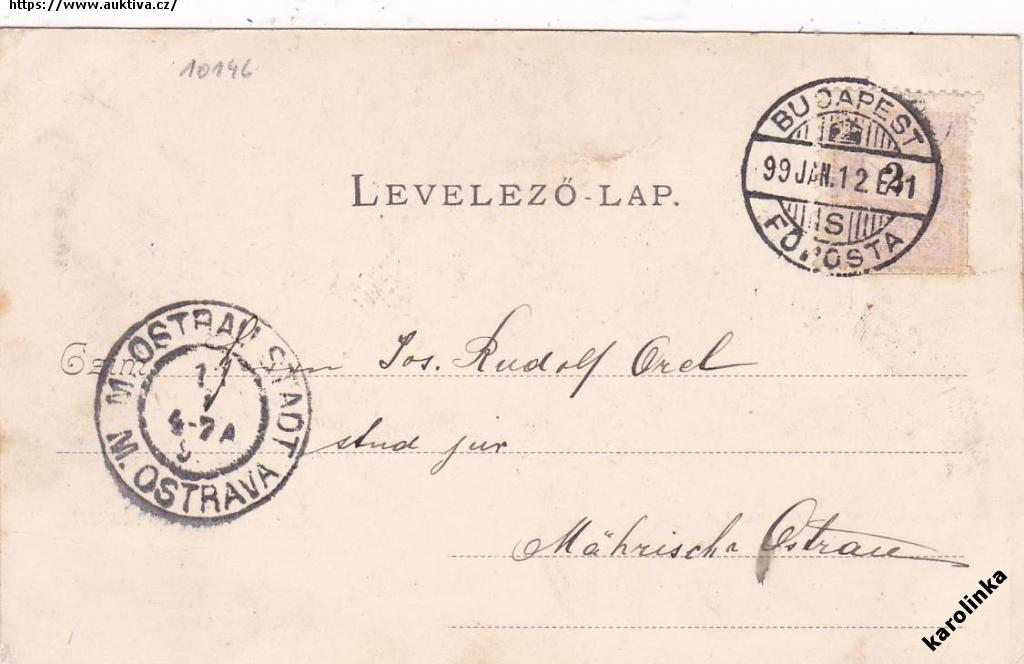 https://www.auktiva.cz/
10146
BUDAPEST
2
99 JAN. 12 E 11
S
FŐPOSTA
LEVELEZŐ-LAP.
M. OSTRAU STADT
4-7 A
M. OSTRAVA
Jos. Rudolf Orel
stud jur
Mährisch Ostrau
karolinka